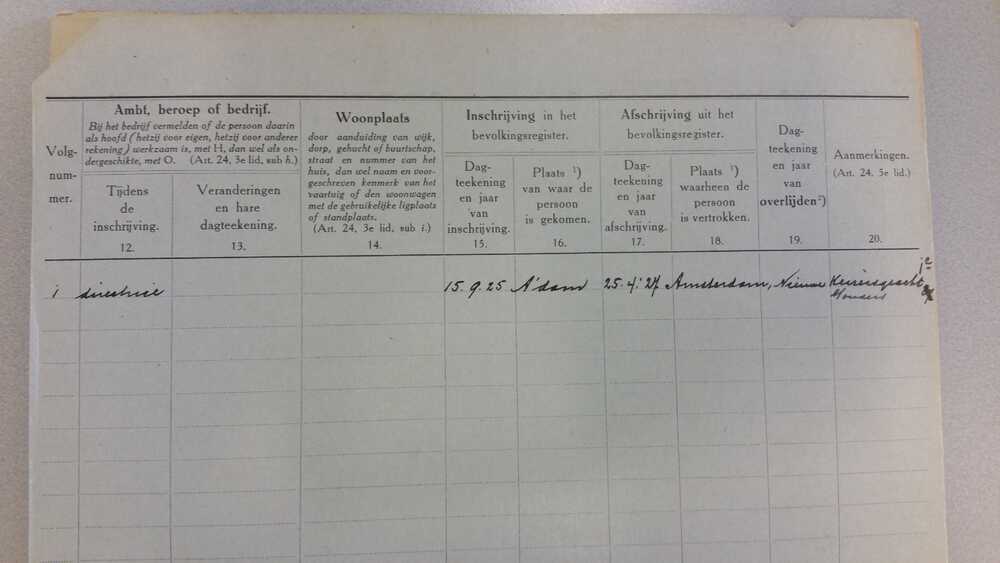 Volg-
num-
mer.
Ambt, beroep of bedrijf.
Bij het bedrijf vermelden of de persoon daarin
als hoofd (hetzij voor eigen, hetzij voor anderer
rekening) werkzaam is, met H, dan wel als on-
dergeschikte, met O. (Art. 24, 3e lid, sub h.)
Tijdens
de
inschrijving.
12.
Veranderingen
en hare
dagteekening.
13.
Woonplaats
door aanduiding van wijk,
dorp, gehucht of buurtschap,
straat en nummer van het
huis, dan wel naam en voor-
geschreven kenmerk van het
vaartuig of den woonwagen
met de gebruikelijke ligplaats
of standplaats.
(Art. 24, 3e lid, sub i.)
14.
Inschrijving in het
bevolkingsregister.
Dag-
teekening
en jaar
van
inschrijving.
15.
Plaats ¹)
van waar de
persoon
is gekomen.
16.
Afschrijving uit het
bevolkingsregister.
Dag-
teekening
en jaar
van
afschrijving.
17.
Plaats ¹)
waarheen de
persoon
is vertrokken.
18.
Dag-
teekening
en jaar
van
overlijden²)
19.
Aanmerkingen.
(Art. 24, 5e lid.)
20.
1 directrice 15.9.25 A'dam 25.4.'27 Amsterdam, Nieuwe Keizersgracht